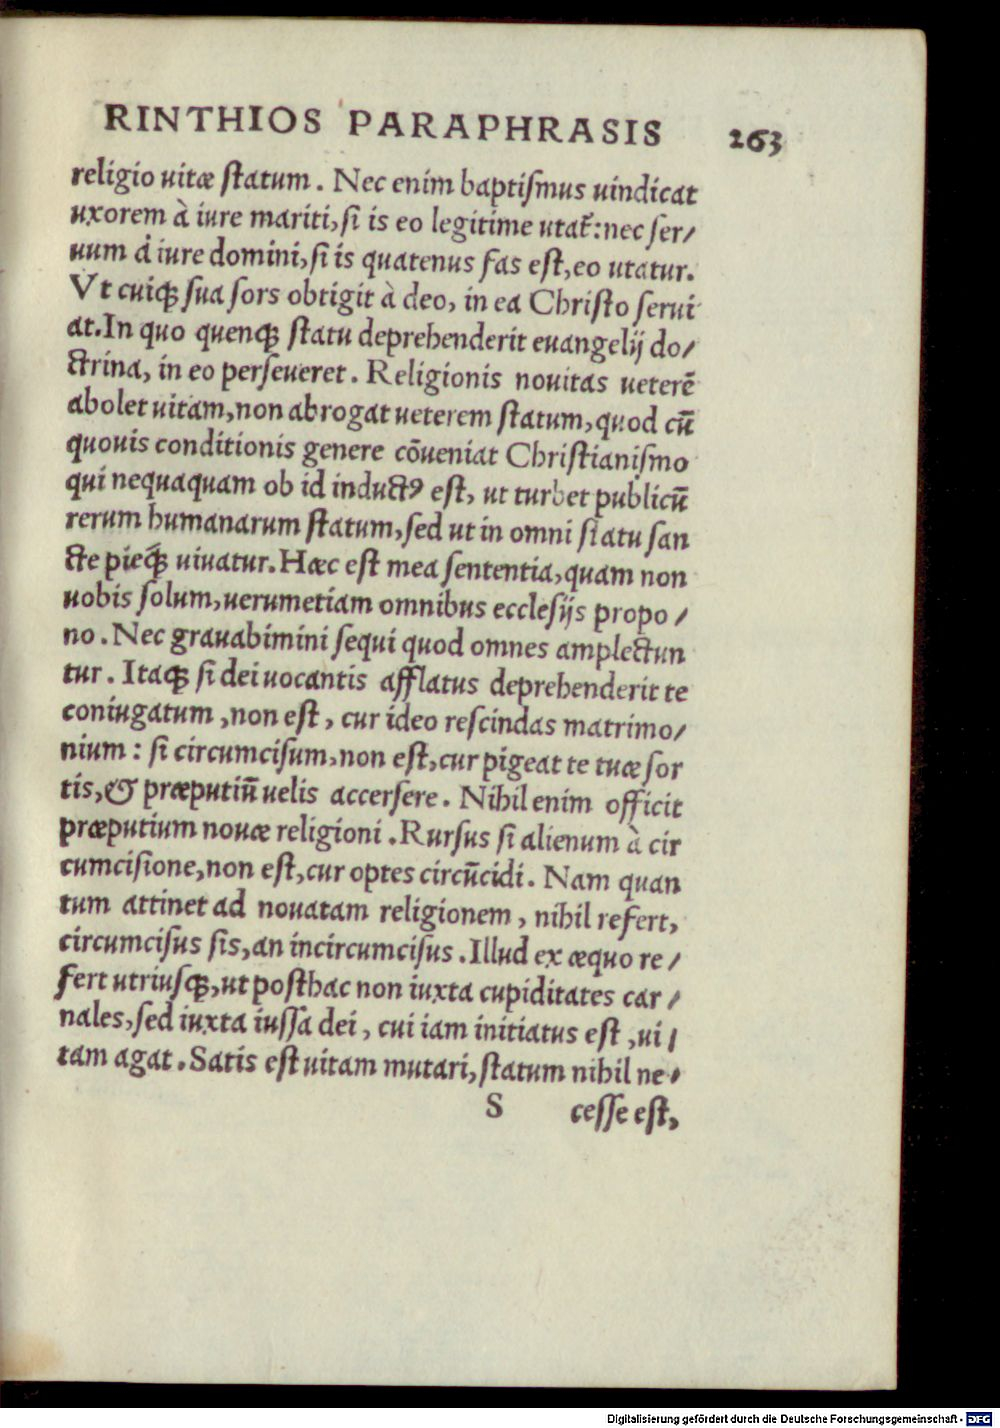 RINTHIOS PARAPHRASIS 263
religio uitæ ſtatum. Nec enim baptiſmus uindicat
uxorem à iure mariti, ſi is eo legitime utat᷑: nec ſer/
uum à iure domini, ſi is quatenus fas eſt, eo utatur.
Vt cuiqꝫ ſua ſors obtigit à deo, in ea Chriſto ſerui
at. In quo quenqꝫ ſtatu deprehenderit euangelij do/
ctrina, in eo perſeueret. Religionis nouitas ueterē
abolet uitam, non abrogat ueterem ſtatum, quod cū
quouis conditionis genere cōueniat Chriſtianiſmo
qui nequaquam ob id inductꝰ eſt, ut turbet publicū
rerum humanarum ſtatum, ſed ut in omni ſtatu ſan
cte pieqꝫ́ uiuatur. Hæc eſt mea ſententia, quam non
uobis ſolum, uerumetiam omnibus eccleſijs propo/
no. Nec grauabimini ſequi quod omnes amplectun
tur. Itaqꝫ ſi dei uocantis afflatus deprehenderit te
coniugatum, non eſt, cur ideo reſcindas matrimo/
nium: ſi circumciſum, non eſt, cur pigeat te tuæ ſor
tis, & præputiū uelis accerſere. Nihil enim officit
præputium nouæ religioni. Rurſus ſi alienum à cir
cumciſione, non eſt, cur optes circūcidi. Nam quan
tum attinet ad nouatam religionem, nihil refert,
circumciſus ſis, an incircumciſus. Illud ex æquo re/
fert utriuſqꝫ, ut poſthac non iuxta cupiditates car/
nales, ſed iuxta iuſſa dei, cui iam initiatus eſt, ui/
tam agat. Satis eſt uitam mutari, ſtatum nihil ne/
S ceſſe eſt,
Digitalisierung gefördert durch die Deutsche Forschungsgemeinschaft - DFG